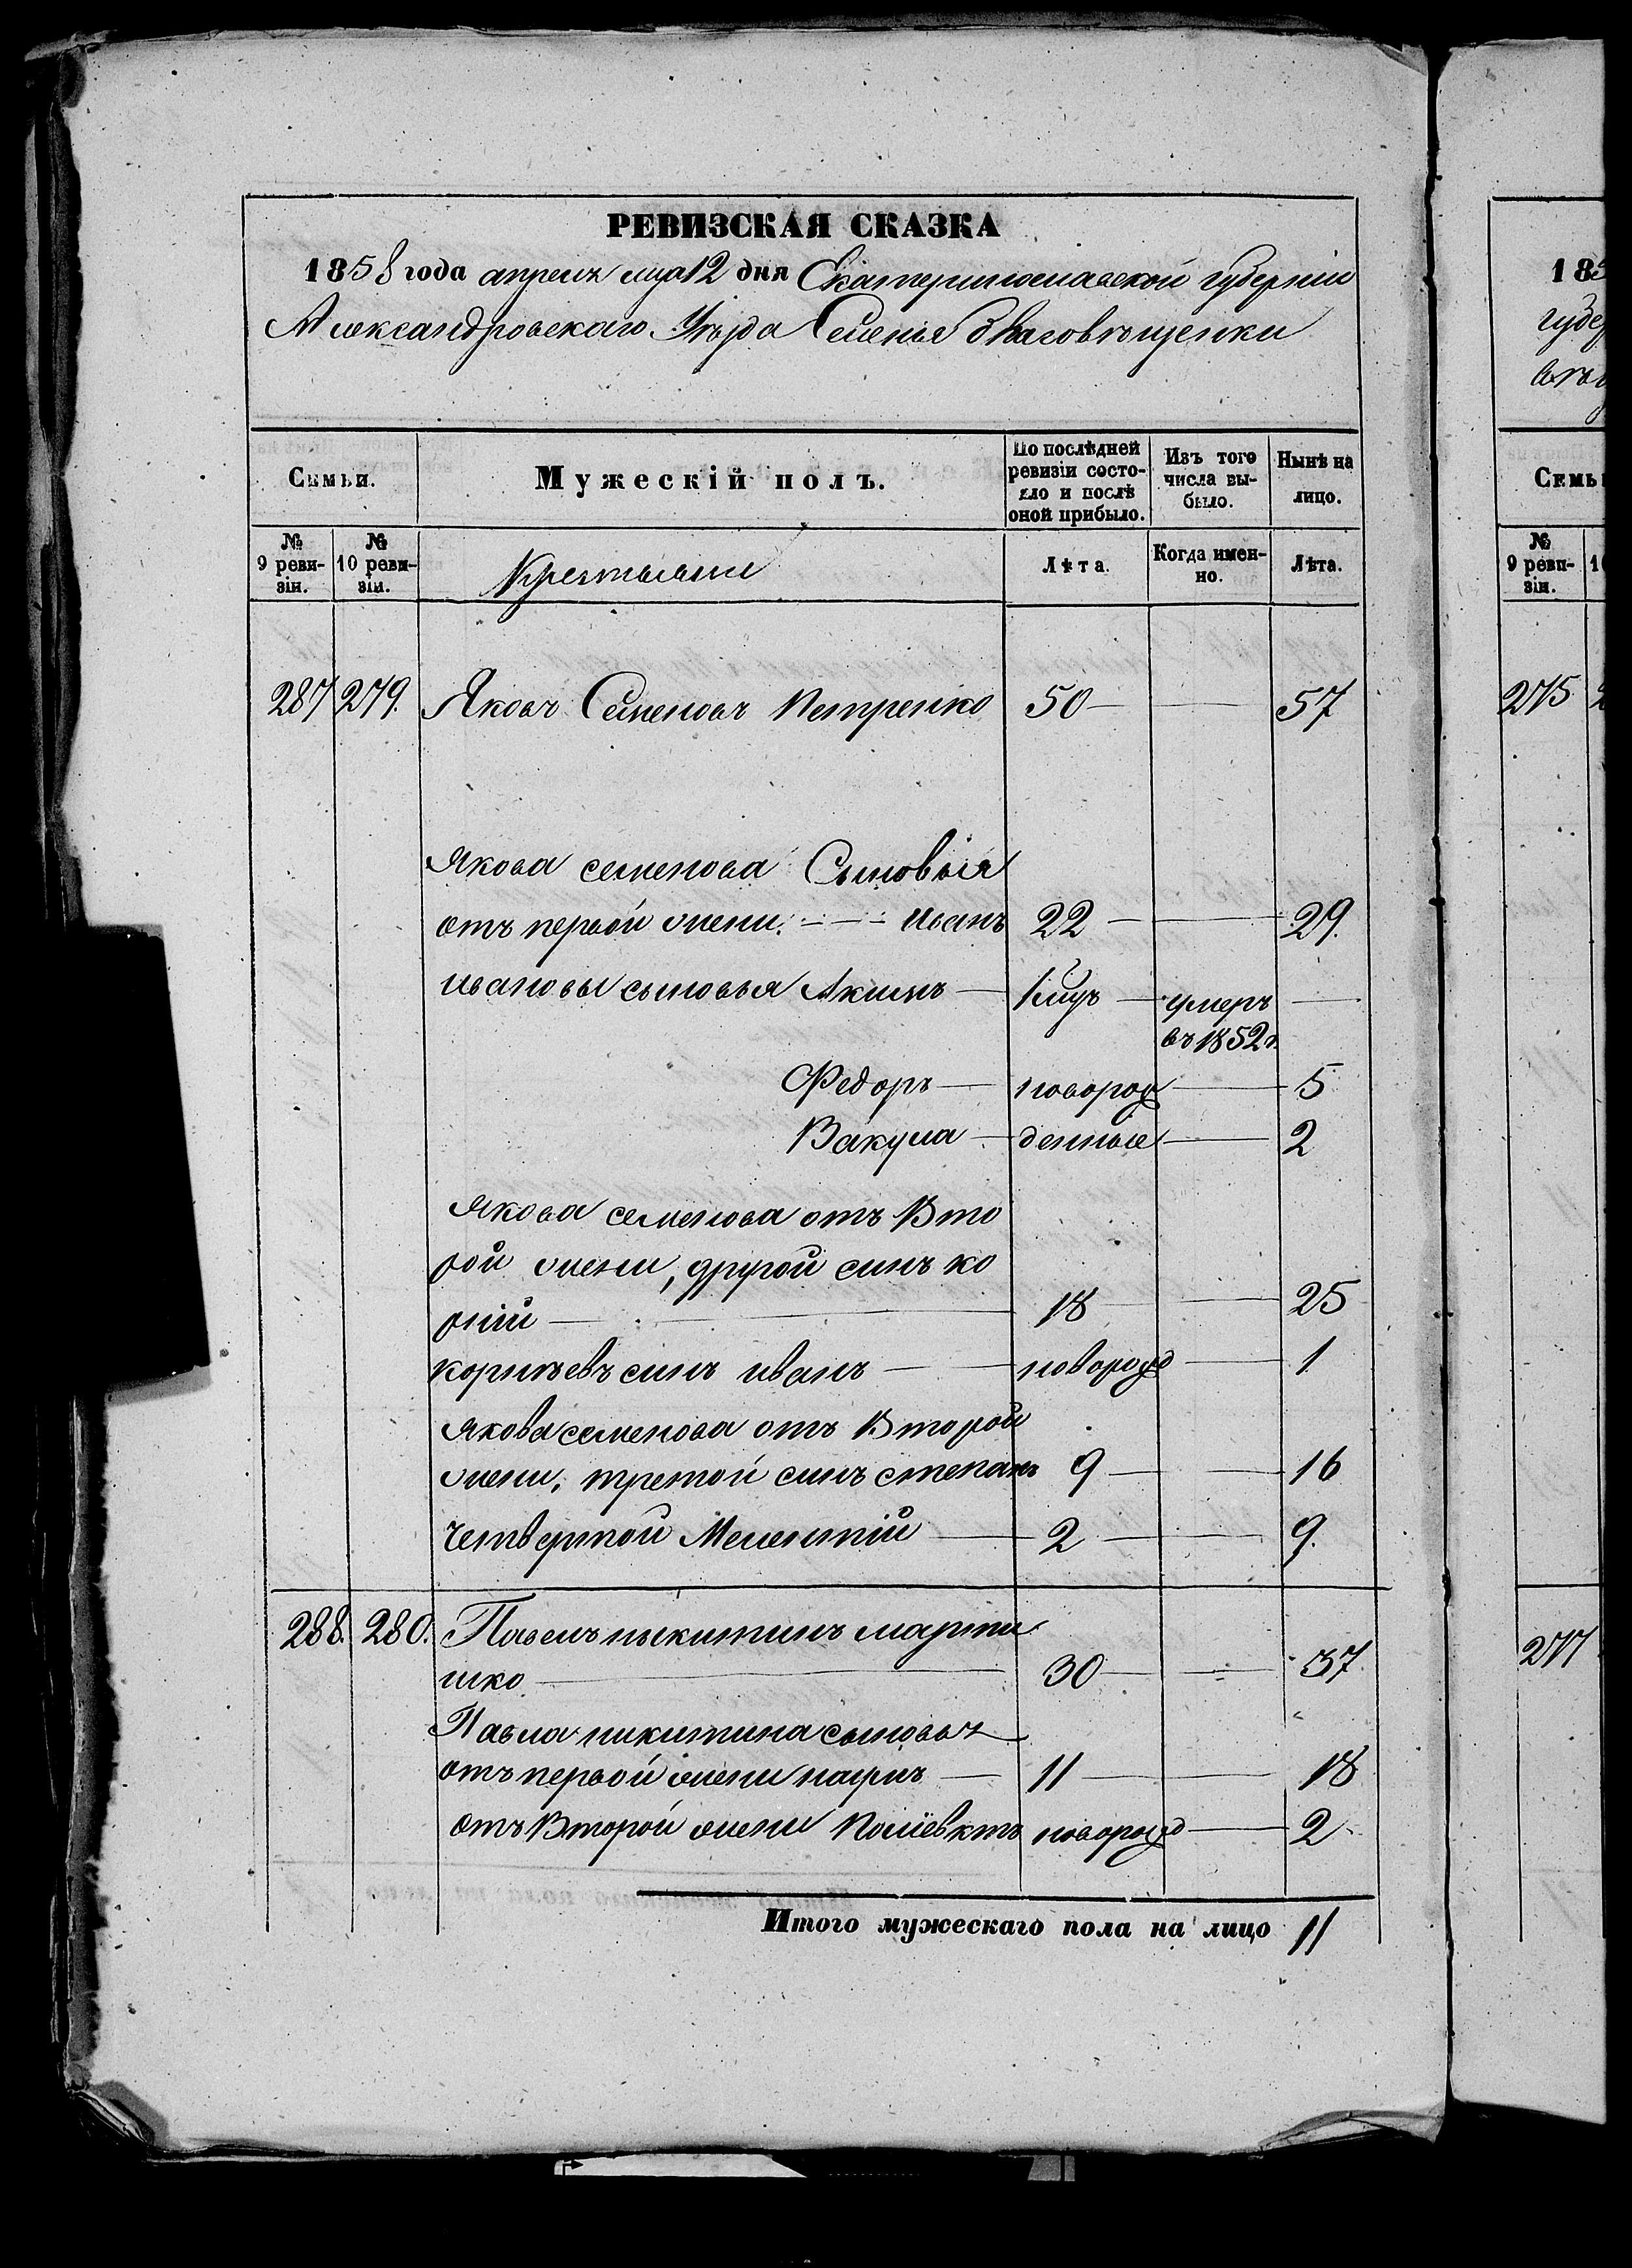 РЕВИЗСКАЯ СКАЗКА
1858 года апреля мца 12 дня Екатеринославской губерніи
Александровскаго Уѣзда Селенья благовѣщенки
Семьи.
Мужескій полъ.
По послѣдней ревизіи состо-
яло и послѣ
оной прибыло.
Изъ того
числа вы-
было.
Нынѣ на
лицо.
№
9 реви-
зіи.
№
10 реви-
зіи.
Крестьяни
Лѣта.
Когда имен-
но.
Лѣта.
287 279. Яковъ Семеновъ Петренко 50 — — 57
Якова семенова Сыновья
отъ первой жени. — — Иванъ 22 — — 29.
Ивановы сыновья Акимъ — 1 мцъ — умеръ —
въ 1852 г.
Федоръ — новорож — 5
Вакула — денные — 2
Якова семенова отъ Вто
рой жени, другой синъ ко
рній — 18 — 25
корнѣевъ синъ иванъ — новорожд — 1
якова семенова отъ Второй
жени, третой синъ степанъ 9 — — 16
Четвертой Мелентій — 2 — — 9.
288. 280. Павелъ никитинъ марти
шко — 30 — — 37.
Павла никитина сыновья
отъ первой жени наумъ — 11 — — 18
отъ Второй жени Полієвктъ новорожд — 2
Итого мужескаго пола на лицо 11
183
губер
№
9 реви-
зіи.
275
277